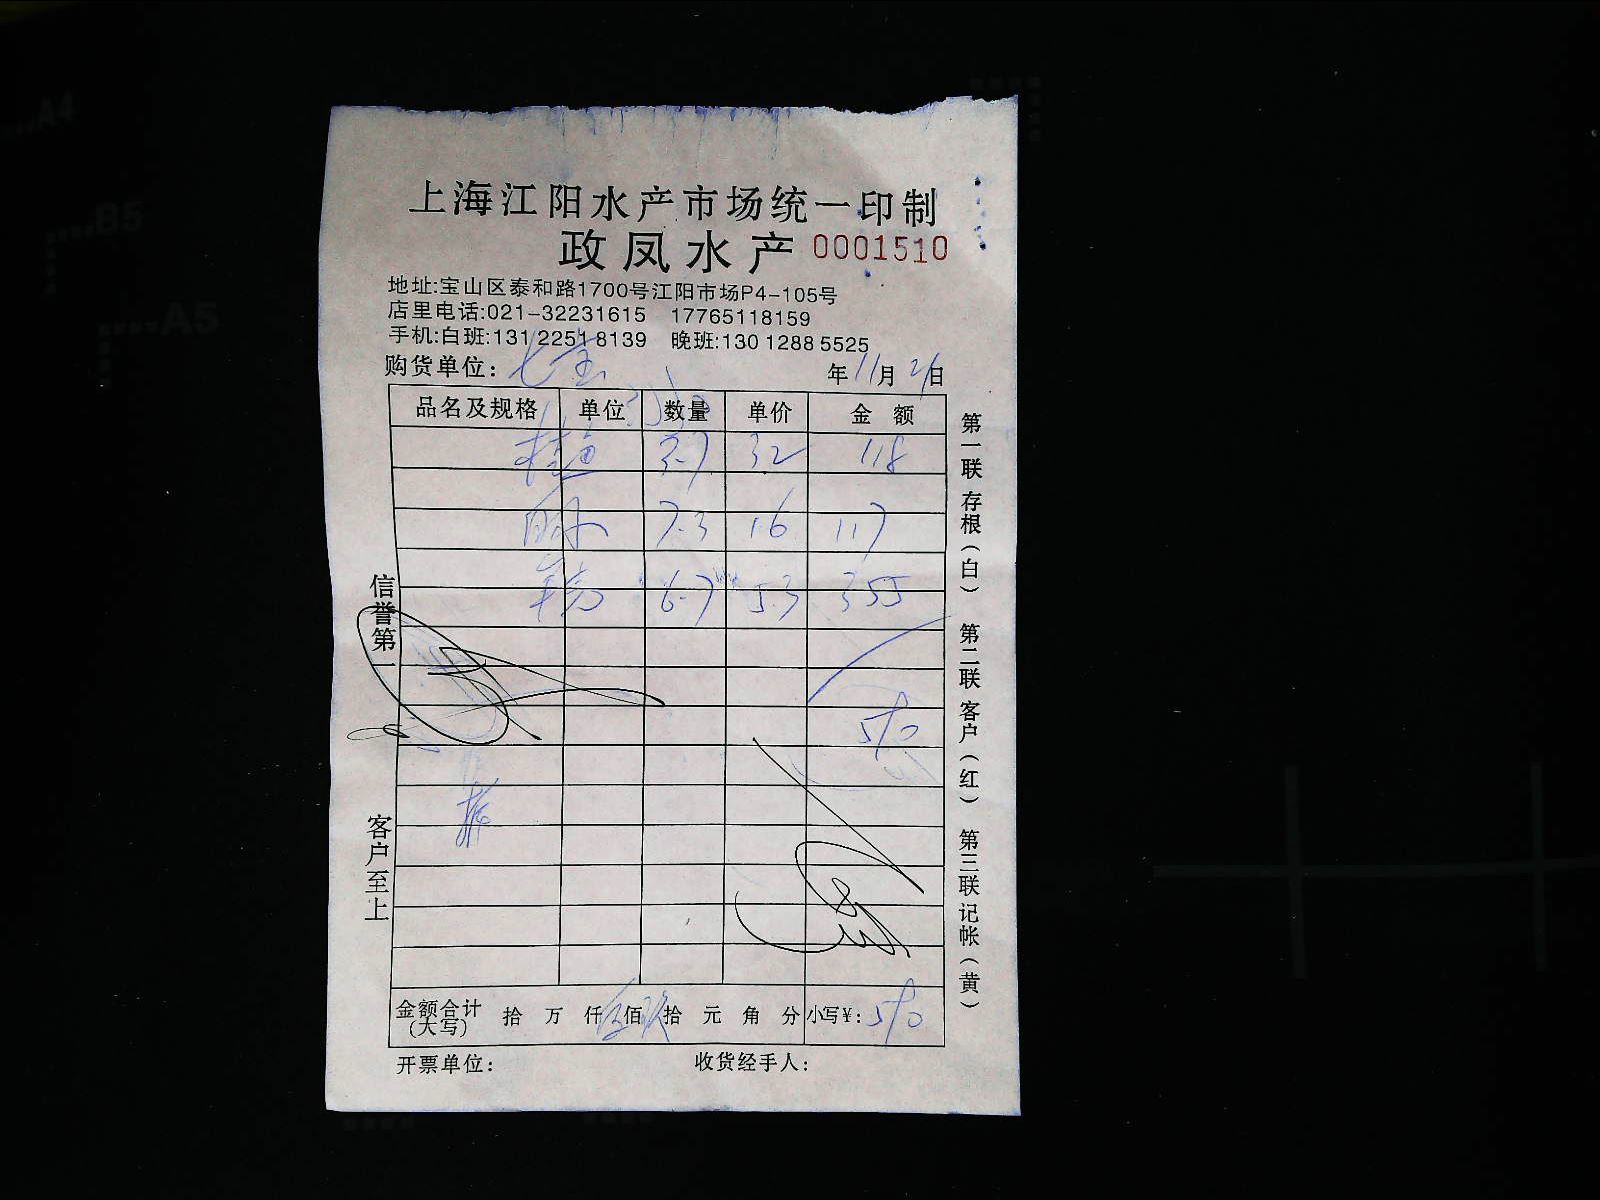 上海江阳水产市场统一印制
政凤水产 0001510
地址:宝山区泰和路1700号江阳市场P4-105号
店里电话:021-32231615 17765118159
手机:白班:131 2251 8139 晚班:130 1288 5525
购货单位: 七宝 年11月21日
品名及规格 单位 数量 单价 金额
桂鱼 3.7 32 118
7.3 16 117
6.7 53 355
590
金额合计(大写) 拾 万 仟伍佰玖拾 元 角 分 小写¥: 590
开票单位: 收货经手人:
信誉第一
客户至上
第一联 存根(白) 第二联 客户(红) 第三联 记帐(黄)